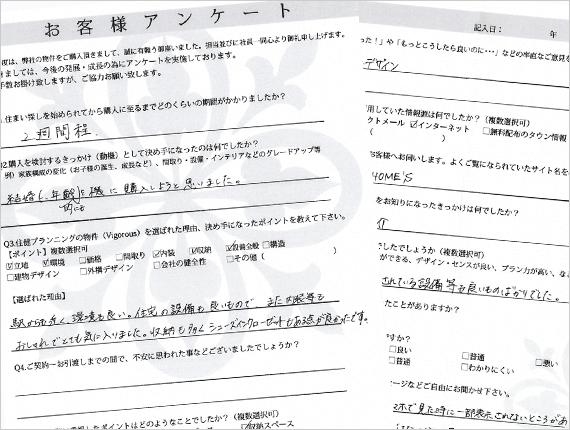 お客様アンケート
度は、弊社の物件をご購入頂きまして、誠に有難う御座いました。担当並びに社員一同心より御礼申し上げます。
きましては、今後の発展・成長の為にアンケートを実施しております。
手数お掛け致しますが、ご協力お願い致します。
.住まい探しを始められてから購入に至るまでどのくらいの期間がかかりましたか?
2週間程
2.購入を検討するきっかけ(動機)として決め手になったのは何でしょうか?
例)家族構成の変化(お子様の誕生、成長など)、間取り・設備・インテリアなどのグレードアップ等
結婚し、年齢的にも機に購入しようと思いました。
Q3.住建プランニングの物件(Vigorous)を選ばれた理由、決め手になったポイントを教えて下さい。
【ポイント】複数選択可
☑立地 ☑環境 □価格 □間取り ☑内装 ☑収納 ☑設備全般 □構造
□建物デザイン □外構デザイン □会社の健全性 □その他( )
【選ばれた理由】
駅からも近く、環境も良い。住宅の設備も良いもので また内装等も
おしゃれでとても気に入りました。収納も多くシューズインクローゼットもある点が良かったです。
Q4.ご契約~お引渡しまでの間で、不安に思われた事などございましたでしょうか?
ポイントはどのようなことでしたか?(複数選択可)
☑収納スペース
記入日: 年
った!」や「もっとこうしたら良いのに・・・」などの率直なご意見を
デザイン
用していた情報源は何でしたか?(複数選択可)
クトメール ☑インターネット □無料配布のタウン情報
( )
客様へお伺いします。よくご覧になられていたサイト名を
HOME'S
をお知りになったきっかけは何ですか?
介
でしたでしょうか(複数選択可)
ができる、デザイン・センスが良い、プラン力が高い、な
されている設備等も良いものばかりでした。
たことがありますか?
すか?
□良い □普通 □悪い
□普通 □わかりにくい
ージなどご自由にお聞かせ下さい。
スマホで見た時に一部表示されないところがあ